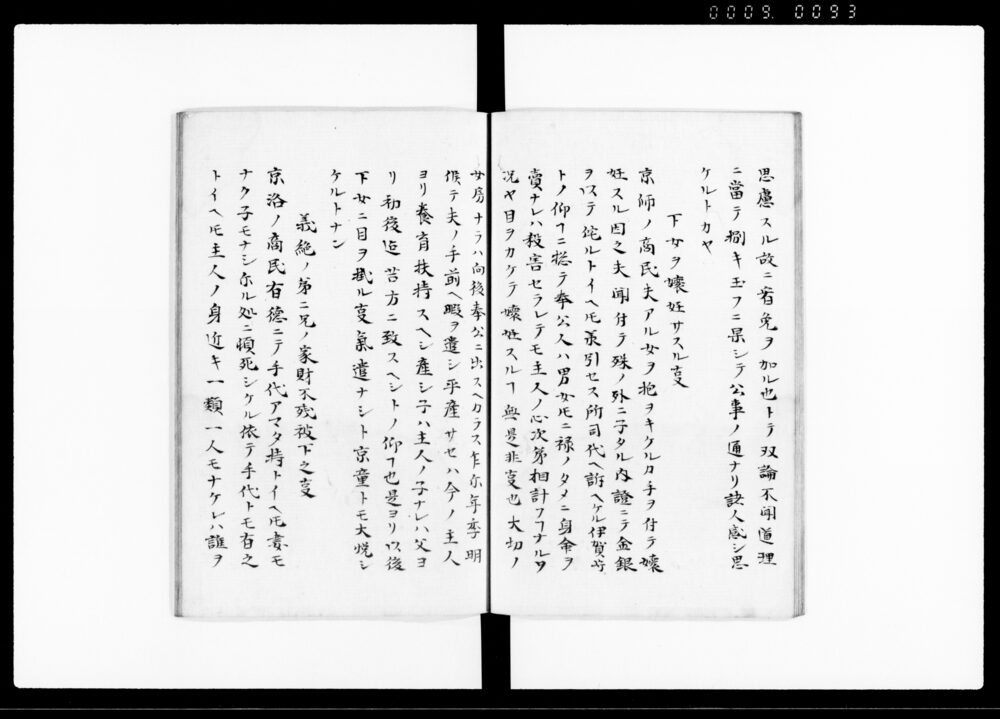 0009. 0093
思慮スル故ニ宥免ヲ加ル也トテ双論不聞道理
ニ當テ捌キ玉フニ果シテ公事ノ通ナリ諸人感シ思
ケルトカヤ
下女ヲ懐妊サスル亊
京師ノ商民夫アル女ヲ抱ヲキケルカ手ヲ付テ懐
妊スル因之夫聞付テ殊ノ外ニ子タル内證ニテ金銀
ヲ以テ侘ルトイヘ𪜈承引セス所司代ヘ訴ヘケル伊賀守
トノ仰ヿニ捴テ奉公人ハ男女𪜈ニ禄ノタメニ身命ヲ
賣ナレハ殺害セラレテモ主人ノ心次第相計フヿナルヲ
况ヤ目ヲカケテ懐妊スルヿ無是非亊也大切ノ
女房ナラハ向後奉公ニ出スヘカラス乍尓年季明
候テ夫ノ手前ヘ暇ヲ遣シ平産サセハ今ノ主人
ヨリ養育扶持スヘシ産シ子ハ主人ノ子ナレハ父ヨ
リ初後迠苦方ニ致スヘシトノ仰ヿ也是ヨリ以後
下女ニ目ヲ掛ル亊氣遣ナシト京童トモ大悦シ
ケルトナン
義絶ノ弟ニ兄ノ家財不残被下之亊
京洛ノ商民有徳ニテ手代アマタ持トイヘ𪜈妻モ
ナク子モナシ尓ル処ニ頓死シケル依テ手代トモ有之
トイヘ𪜈主人ノ身近キ一類一人モナケレハ誰ヲ